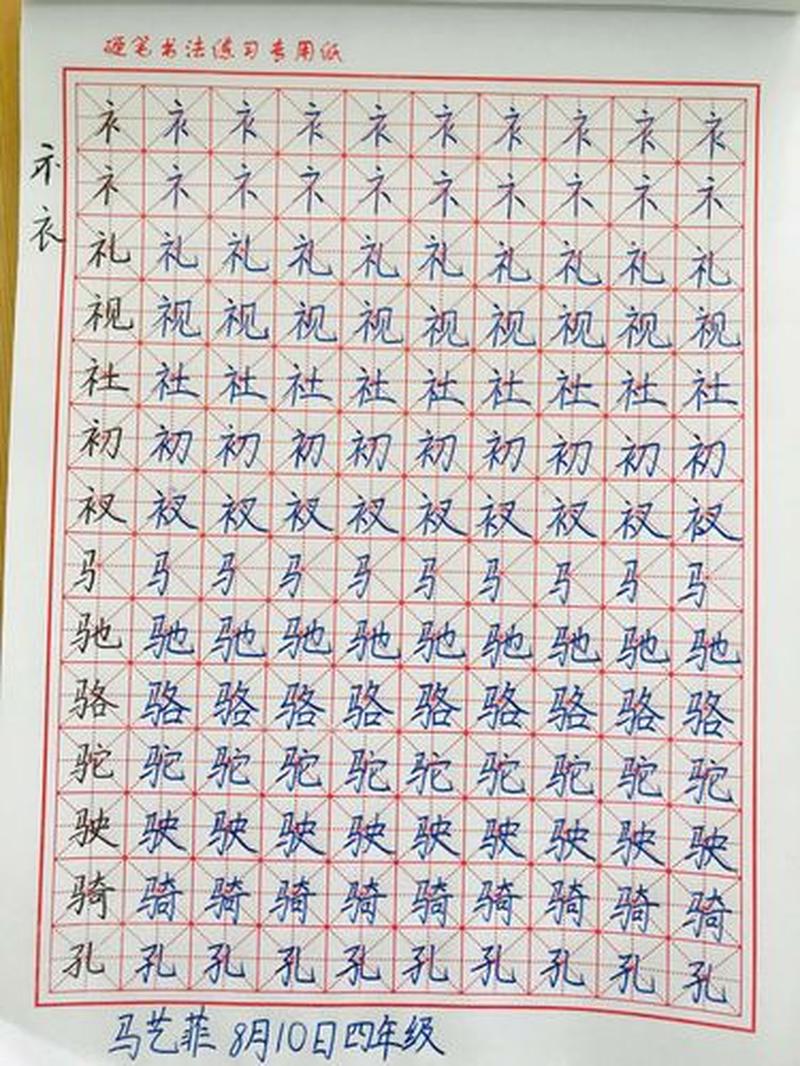 硬笔书法练习专用纸
衤衤衤衤衤衤衤衤衤衤
礻礻礻礻礻礻礻礻礻礻
礼礼礼礼礼礼礼礼礼礼
视视视视视视视视视视
社社社社社社社社社社
初初初初初初初初初初
衩衩衩衩衩衩衩衩衩衩
马马马马马马马马马马
驰驰驰驰驰驰驰驰驰驰
骆骆骆骆骆骆骆骆骆骆
驼驼驼驼驼驼驼驼驼驼
驶驶驶驶驶驶驶驶驶驶
骑骑骑骑骑骑骑骑骑骑
孔孔孔孔孔孔孔孔孔孔
衣
马艺菲 8月10日四年级